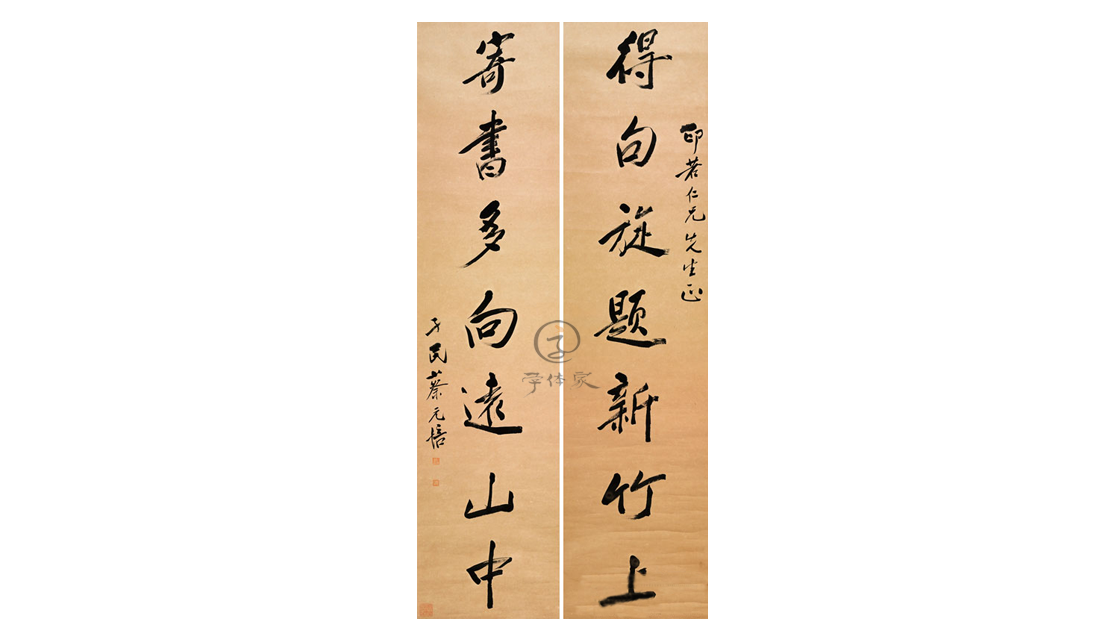 得句旋題新竹上
卬若仁兄先生正
寄書多向遠山中
孑民蔡元培
字体家